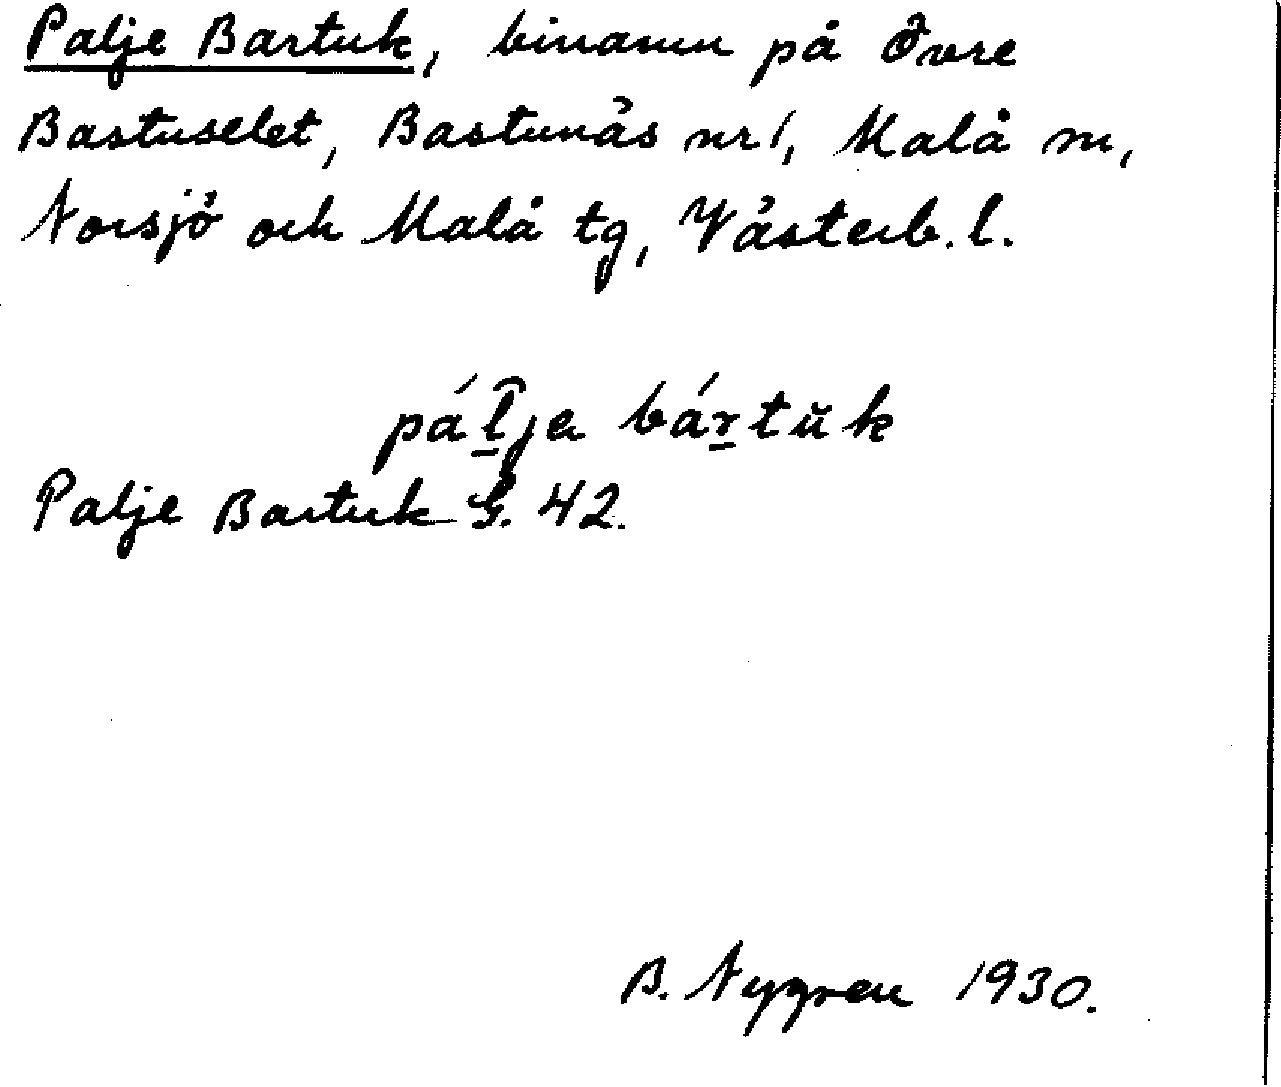 Palje Bartuk, binamn på Övre
Bastuselet, Bastunäs nr 1, Malå sn,
Norsjö och Malå tg, Västerb. l.
pál̲̑ja bár̲tŭk
Palje Bartuk G. 42.
B. Nygren 1930.